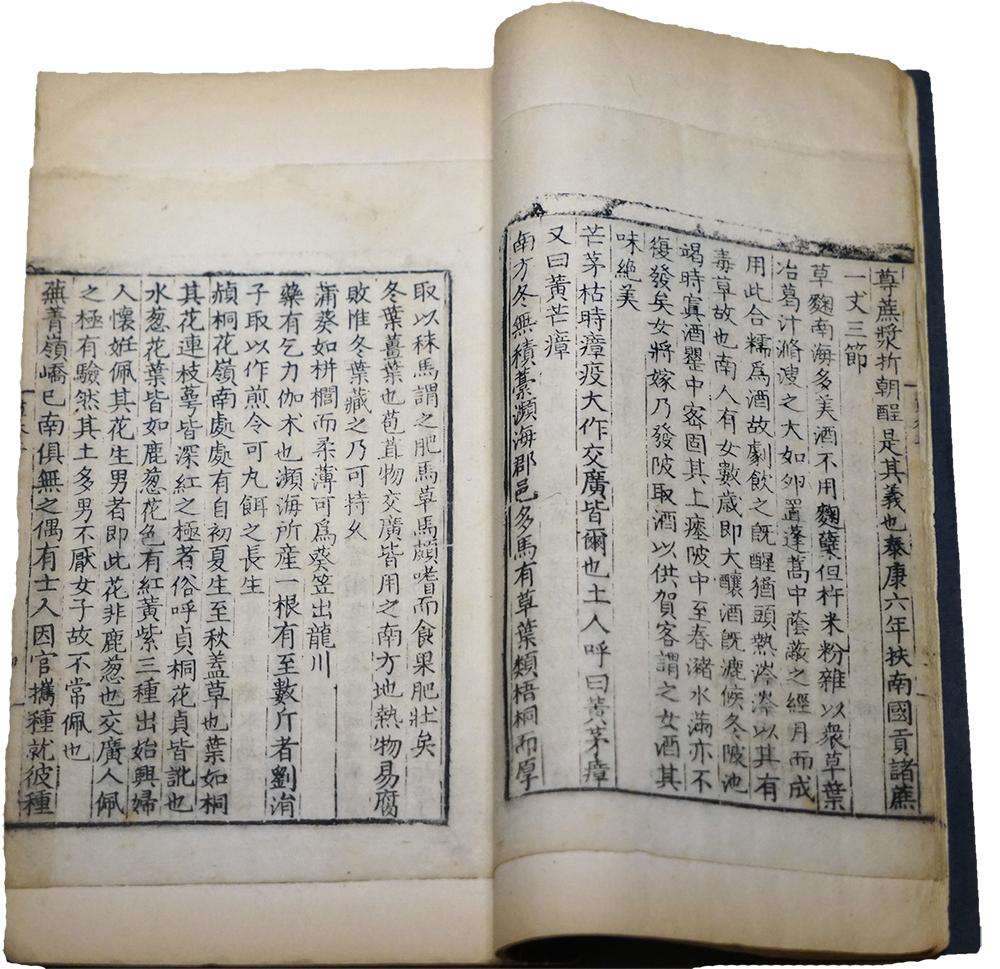 尊蔗漿折朝酲是其義也泰康六年扶南國貢諸蔗
一丈三節
草麴南海多美酒不用麴糵但杵米粉雜以衆草葉
冶葛汁滫溲之大如卵置蓬蒿中蔭蔽之經月而成
用此合糯爲酒故劇飲之旣醒猶頭熱涔涔以其有
毒草故也南人有女數歲即大釀酒旣漉候冬陂池
竭時寘酒罌中密固其上瘞陂中至春瀦水滿亦不
復發矣女將嫁乃發陂取酒以供賀客謂之女酒其
味絶美
芒茅枯時瘴疫大作交廣皆爾也土人呼曰黃茅瘴
又曰黃芒瘴
南方冬無積藁瀕海郡邑多馬有草葉類梧桐而厚
取以秣馬謂之肥馬草馬頗嗜而食果肥壯矣
冬葉薑葉也苞苴物交廣皆用之南方地熱物易腐
敗惟冬葉藏之乃可持久
蒲葵如栟櫚而柔薄可爲葵笠出龍川
藥有乞力伽术也瀕海所産一根有至數斤者劉涓
子取以作煎令可丸餌之長生
赬桐花嶺南處處有自初夏生至秋蓋草也葉如桐
其花連枝萼皆深紅之極者俗呼貞桐花貞皆訛也
水葱花葉皆如鹿葱花色有紅黃紫三種出始興婦
人懷妊佩其花生男者即此花非鹿葱也交廣人佩
之極有驗然其土多男不厭女子故不常佩也
蕪菁嶺嶠已南俱無之偶有士人因官攜種就彼種